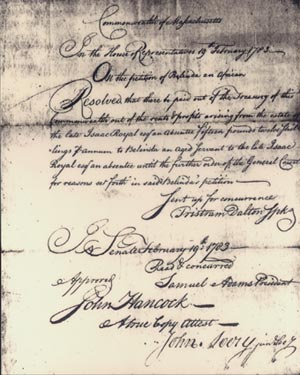 Commonwealth of Massachusetts
In the House of Representatives 19th February 1783
On the petition of Belinda an African
Resolved that there be paid out of the Treasury of this
Commonwealth out of the rents & profits arising from the estate of
the late Isaac Royal esqr an absentee fifteen pounds twelve shil
lings & annum to Belinda an aged servant to the late Isaac
Royal esqr an absentee until the further order of the General Court
for reasons set forth in said Belinda's petition
Sent up for concurrence
Tristram Dalton Spkr
In Senate February 19th 1783
Read & concurred
Samuel Adams President
Approved
John Hancock
A true Copy Attest
John Avery